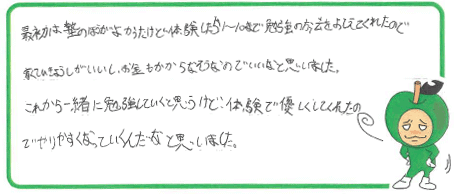 最初は塾のほうがよかったけど体験したら1~10まで勉強の方法をおしえてくれたので
家でいきょうしがいいし、お金もかからなそうなのでいいなと思いました。
これから一緒に勉強していくと思うけど、体験で優しくしてくれたの
でやりやすくなっていくんだなと思いました。